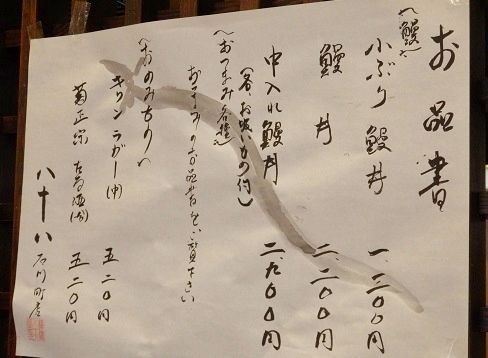 お品書
〈鰻〉
小ぶり鰻丼 一、三〇〇円
鰻丼 二、二〇〇円
中入れ鰻丼 二、九〇〇円
(各、お吸いもの付)
〈おつまみ各種〉
おつまみのお品書をご覧下さい
〈おのみもの〉
キリンラガー(中) 五二〇円
菊正宗 五二〇円
八十八 石川町店